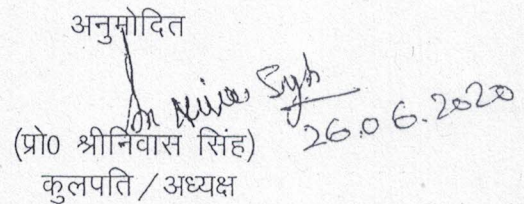 अनुमोदित
26.06.2020
(प्रो0 श्रीनिवास सिंह)
कुलपति / अध्यक्ष